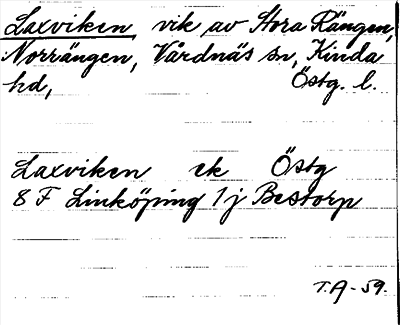 Laxviken, vik av Stora Rängen,
Norrängen, Vårdnäs sn, Kinda
hd, Östg. l.
Laxviken ek Östg
8 F Linköping 1 j Bestorp
T.A-59.